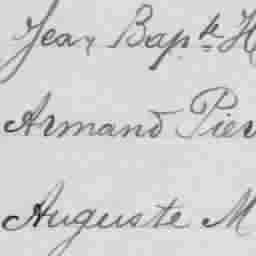 Jean Bapte H
Armand Pier
Auguste M